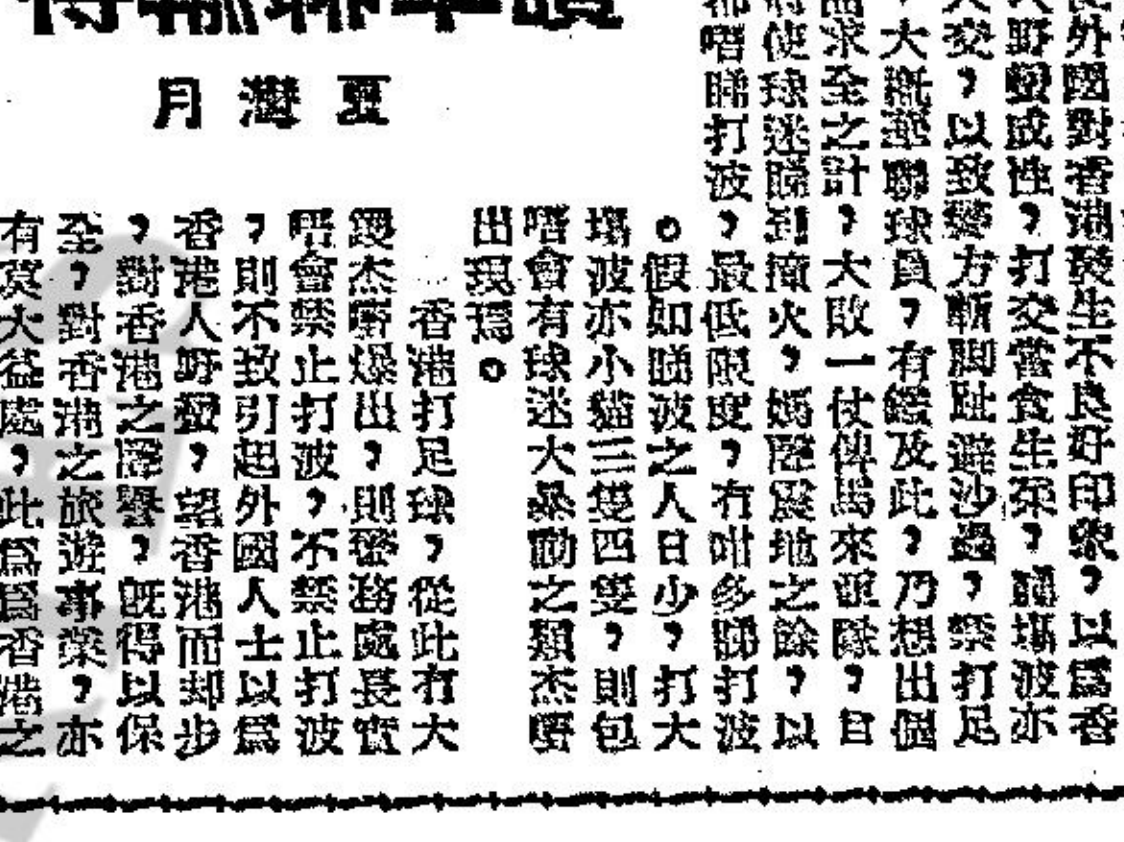 讚華聯輸得
夏灣月
外國對香港發生不良好印象,以爲香
野蠻成性,打交當食生菜,塲波亦
大交,以致變方斬脚趾避沙蟲,禁打足
,大概華聯球員,有鑑及此,乃想出個
求全之計,大敗一仗俾馬來亞隊,自
使球迷睇到滾火,媽聲震地之餘,以
都唔睇打波,最低限度,有咁多睇打波
。假如睇波之人日少,打大
塲波亦小貓三隻四隻,則包
唔會有球迷大暴動之類杰嘢
出現焉。
香港打足球,從此冇大
鑊杰嘢爆出,則警務處長實
唔會禁止打波,不禁止打波
,則不致引起外國人士以爲
香港人野蠻,望香港而却步
,對香港之聲譽,旣得以保
全,對香港之旅遊事業,亦
有莫大益處,此爲爲香港之